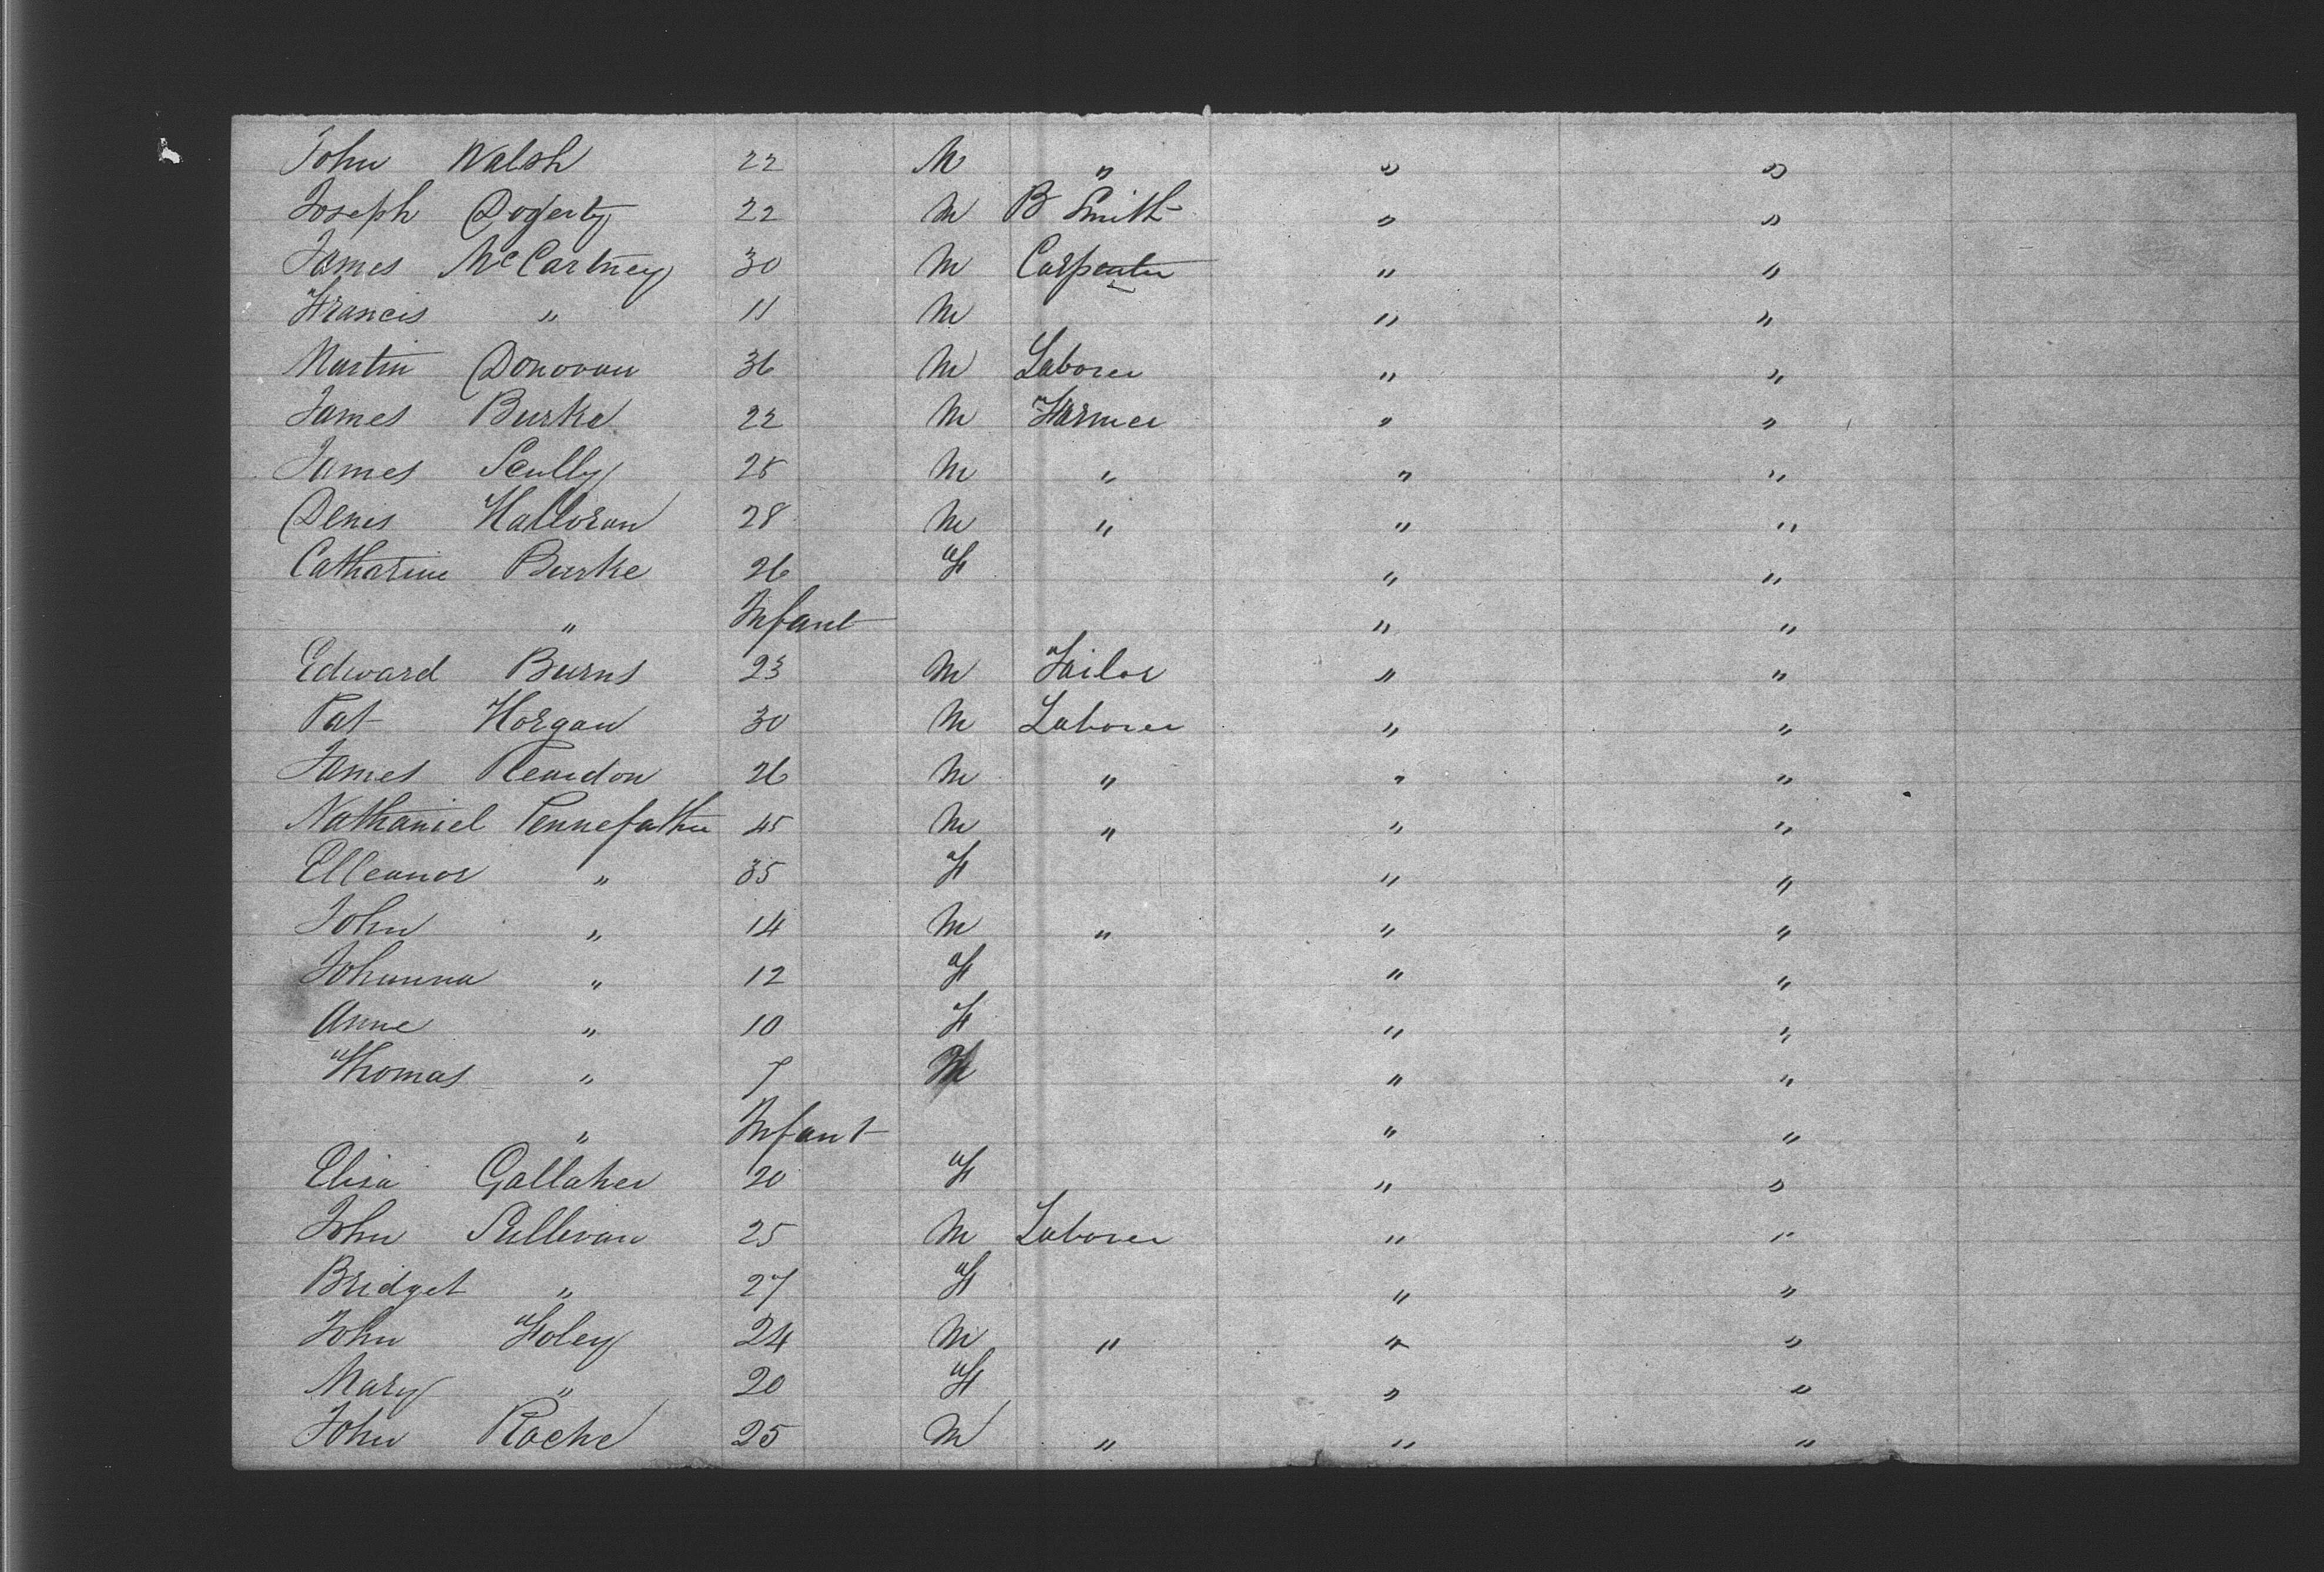 John Walsh 22 M " " "
Joseph Dogerty 22 M B Smith " "
James McCartney 30 M Carpenter " "
Francis " 11 M " "
Martin Donovan 36 M Laborer " "
James Burke 22 M Farmer " "
James Scully 28 M " " "
Denis Halloran 28 M " " "
Catharine Burke 26 F " "
" Infant " "
Edward Burns 23 M Tailor " "
Pat Horgan 30 M Laborer " "
James Reardon 26 M " " "
Nathaniel Pennefather 45 M " " "
Elleanor " 35 F " "
John " 14 M " " "
Johanna " 12 F " "
Anne " 10 F " "
Thomas " 7 M " "
" Infant " "
Elisa Gallaher 20 F " "
John Sullivan 25 M Laborer " "
Bridget " 27 F " "
John Foley 24 M " " "
Mary " 20 F " "
John Roche 25 M " " "